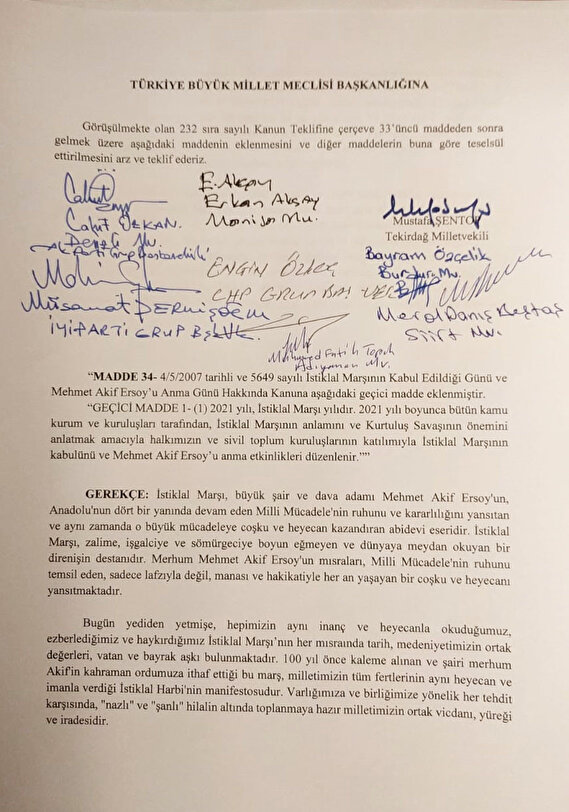 TÜRKİYE BÜYÜK MİLLET MECLİSİ BAŞKANLIĞINA
Görüşülmekte olan 232 sıra sayılı Kanun Teklifine çerçeve 33’üncü maddeden sonra
gelmek üzere aşağıdaki maddenin eklenmesini ve diğer maddelerin buna göre teselsül
ettirilmesini arz ve teklif ederiz.
E. Akçay
Erkan Akçay
Manisa Mv.
Cahit ÖZKAN
Denizli Mv.
Ak Parti Grup Başkanvekili
Mustafa ŞENTOP
Tekirdağ Milletvekili
Bayram Özçelik
Burdur Mv.
ENGİN ÖZKOÇ
CHP GRUP BAŞ VEK
Müsavat DERVİŞOĞLU
İYİ PARTİ GRUP BŞK
Meral Danış Beştaş
Siirt Mv.
Muhammed Fatih Toprak
Adıyaman Mv.
“MADDE 34- 4/5/2007 tarihli ve 5649 sayılı İstiklal Marşının Kabul Edildiği Günü ve
Mehmet Akif Ersoy’u Anma Günü Hakkında Kanuna aşağıdaki geçici madde eklenmiştir.
“GEÇİCİ MADDE 1- (1) 2021 yılı, İstiklal Marşı yılıdır. 2021 yılı boyunca bütün kamu
kurum ve kuruluşları tarafından, İstiklal Marşının anlamını ve Kurtuluş Savaşının önemini
anlatmak amacıyla halkımızın ve sivil toplum kuruluşlarının katılımıyla İstiklal Marşının
kabulünü ve Mehmet Akif Ersoy’u anma etkinlikleri düzenlenir.””
GEREKÇE: İstiklal Marşı, büyük şair ve dava adamı Mehmet Akif Ersoy'un,
Anadolu'nun dört bir yanında devam eden Milli Mücadele'nin ruhunu ve kararlılığını yansıtan
ve aynı zamanda o büyük mücadeleye coşku ve heyecan kazandıran abidevi eseridir. İstiklal
Marşı, zalime, işgalciye ve sömürgeciye boyun eğmeyen ve dünyaya meydan okuyan bir
direnişin destanıdır. Merhum Mehmet Akif Ersoy'un mısraları, Milli Mücadele'nin ruhunu
temsil eden, sadece lafzıyla değil, manası ve hakikatiyle her an yaşayan bir coşku ve heyecanı
yansıtmaktadır.
Bugün yediden yetmişe, hepimizin aynı inanç ve heyecanla okuduğumuz,
ezberlediğimiz ve haykırdığımız İstiklal Marşı’nın her mısraında tarih, medeniyetimizin ortak
değerleri, vatan ve bayrak aşkı bulunmaktadır. 100 yıl önce kaleme alınan ve şairi merhum
Akif'in kahraman ordumuza ithaf ettiği bu marş, milletimizin tüm fertlerinin aynı heyecan ve
imanla verdiği İstiklal Harbi'nin manifestosudur. Varlığımıza ve birliğimize yönelik her tehdit
karşısında, "nazlı" ve "şanlı" hilalin altında toplanmaya hazır milletimizin ortak vicdanı, yüreği
ve iradesidir.